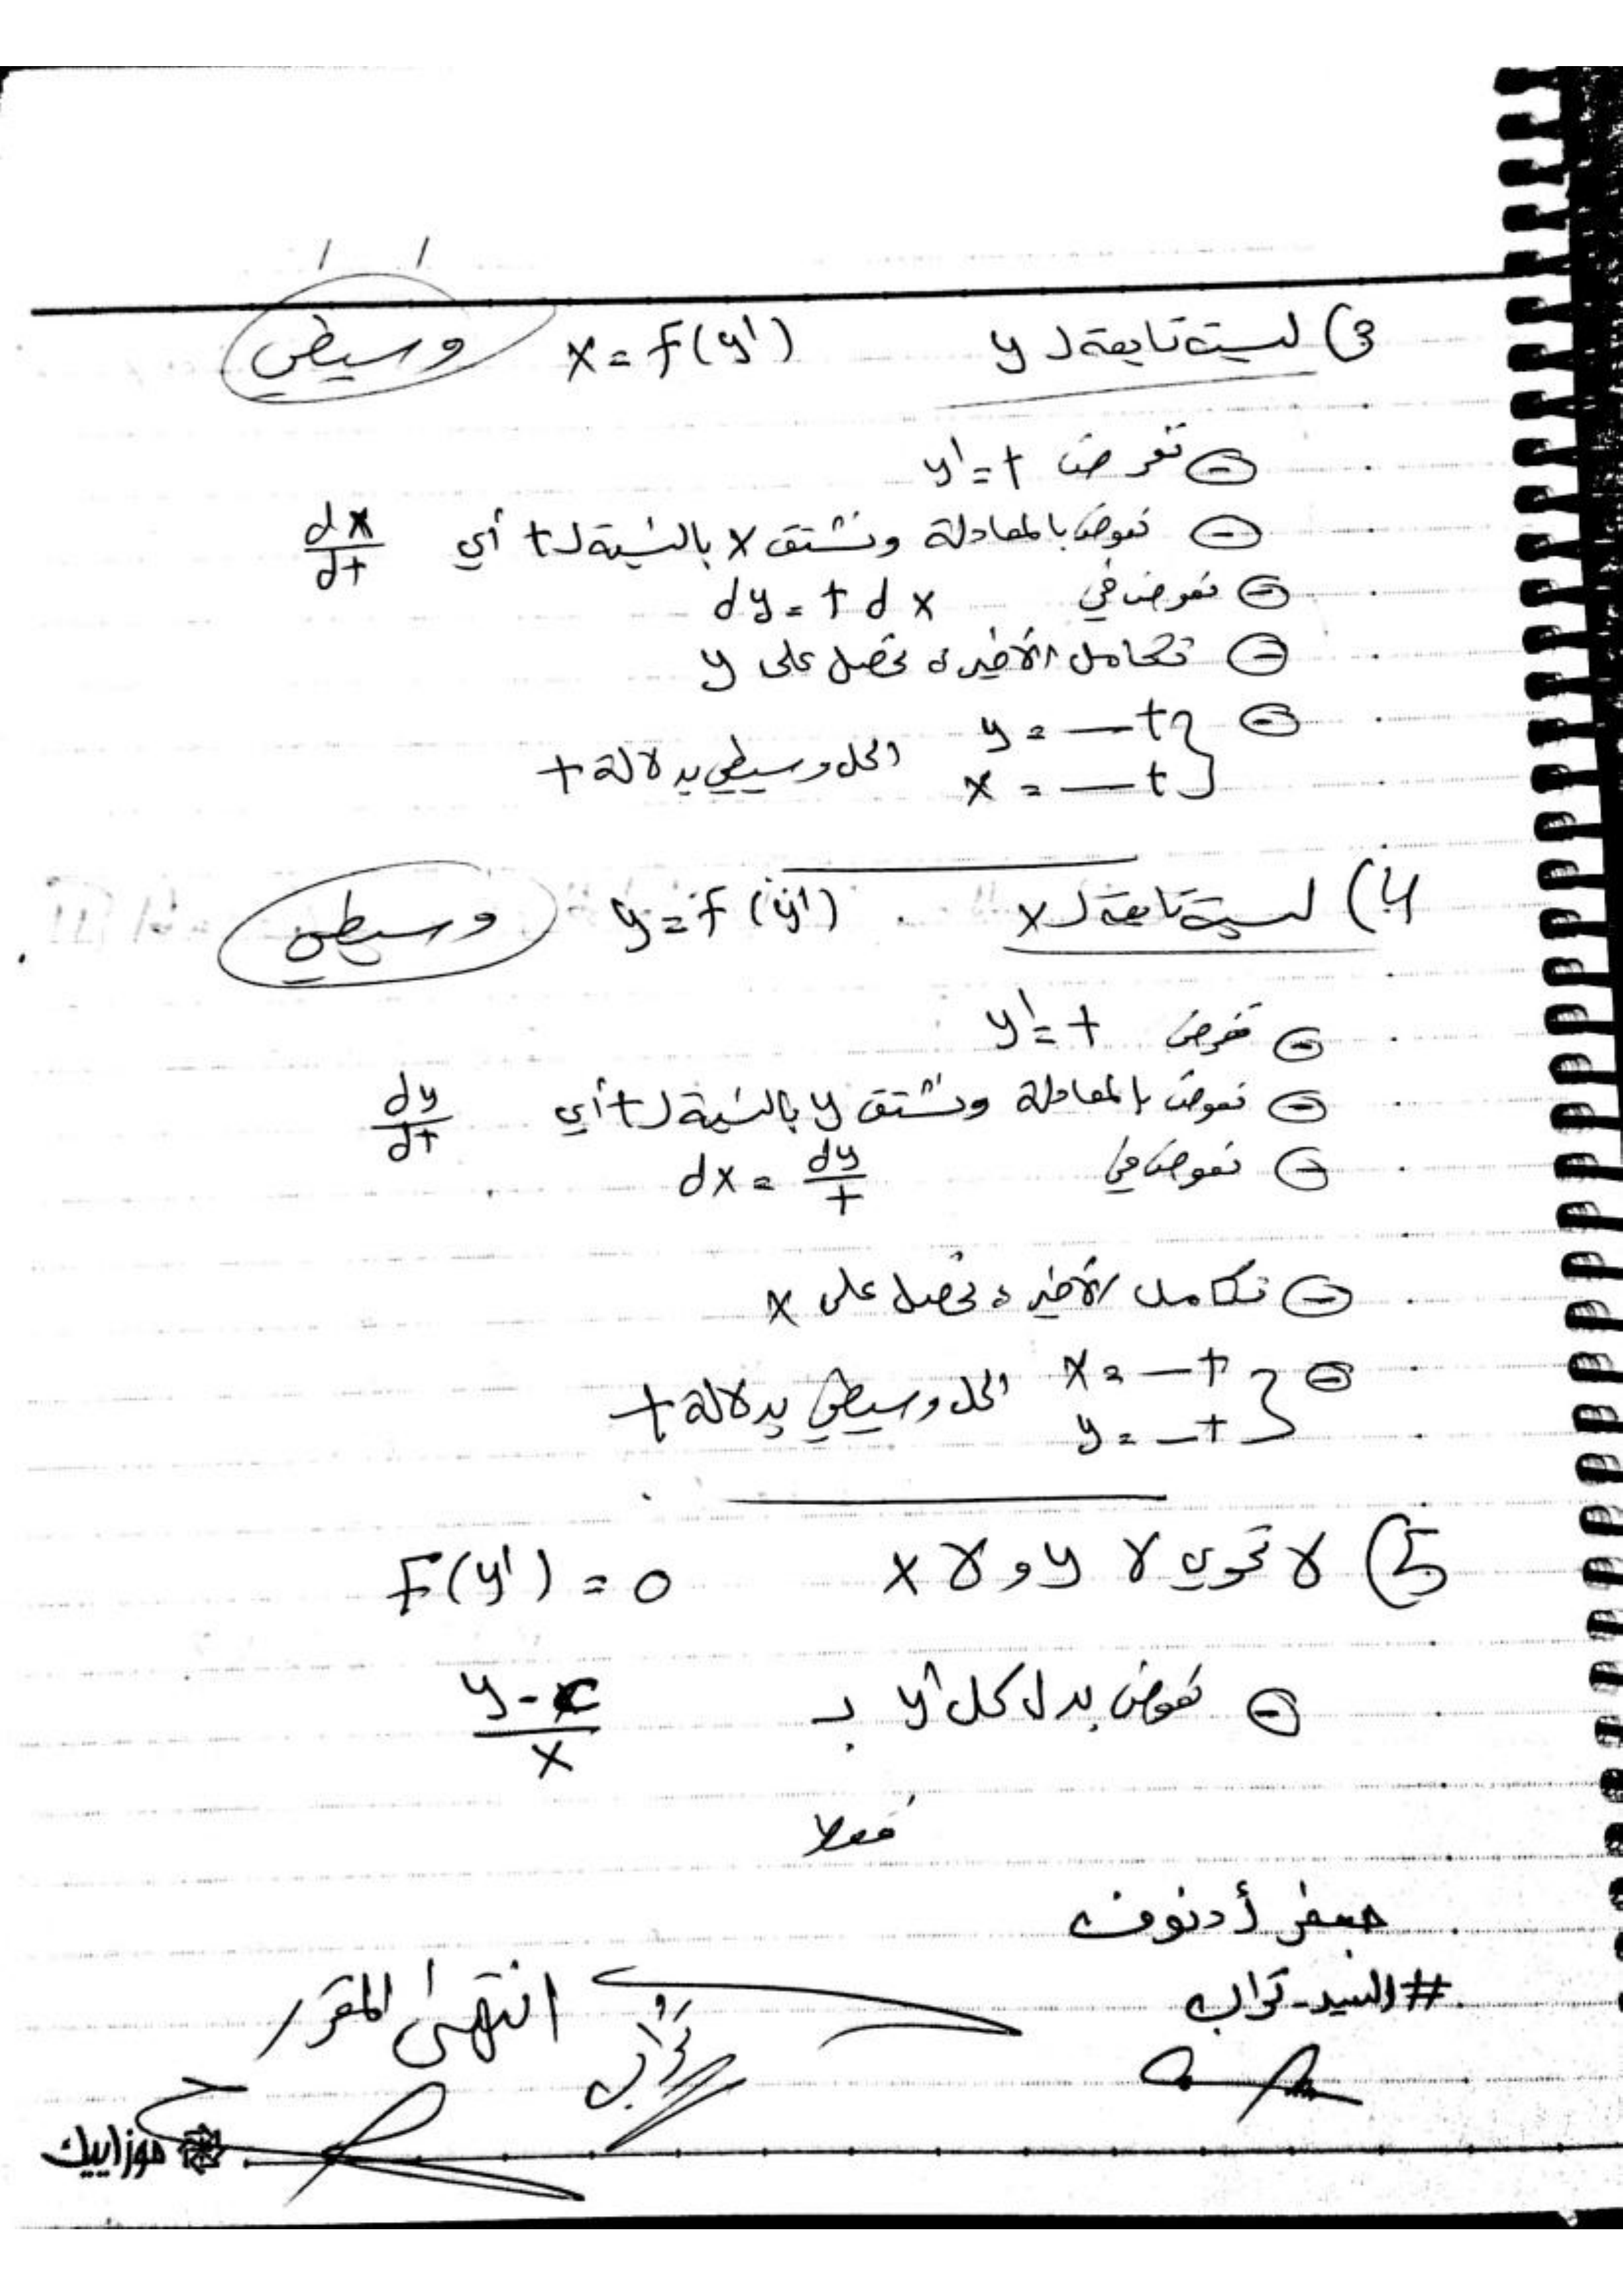 3) ليست تابعة لـ y x = f(y') وسيطي
نفرض y' = t
نعوض بالمعادلة ونشتق x بالنسبة لـ t أي dx/dt
نعوض في dy = t dx
نكامل الأخيرة نحصل على y
y = — t
x = — t } الحل وسيطي بدلالة t
4) ليست تابعة لـ x y = f(y') وسيطي
نفرض y' = t
نعوض بالمعادلة ونشتق y بالنسبة لـ t أي dy/dt
نعوض في dx = dy/t
نكامل الأخيرة نحصل على x
x = — t
y = — t } الحل وسيطي بدلالة t
5) لا تحوي لا y ولا x F(y') = 0
نعوض بدل كل y' بـ (y-c)/x
فقط
جعفر أدنوف
#السيد_تراب
انتهى المقرر
تراب
موزاييك